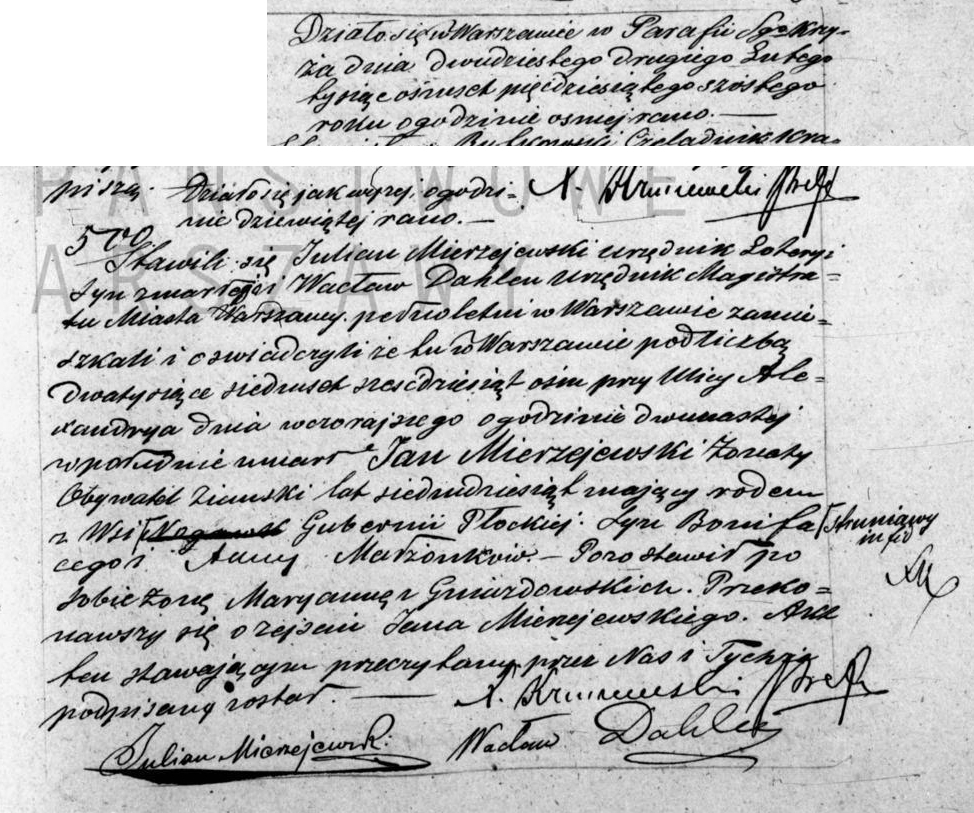 Działo się w Warszawie w Parafii Sgo Krzy-
ża dnia dwudziestego drugiego Lutego
tysiąc ośmset pięćdziesiątego szóstego
roku o godzinie osmej rano. —
Rutkowski Czeladnik Kra-
piszą. Działo się jak wyżej o godzi-
nie dziewiątej rano. —
Stawili się Julian Mierzejewski urzędnik Loteryi
Syn zmarłego i Wacław Dahlen Urzędnik Magistra=
tu Miasta Warszawy. pełnoletni w Warszawie zamie=
szkali i oświadczyli że tu w Warszawie pod liczbą
dwa tysiące siedmset sześćdziesiąt ośm przy Ulicy Ale=
xandrya dnia wczorajszego o godzinie dwunastej
w południe umarł Jan Mierzejewski Żonaty
Obywatel Ziemski lat siedmdziesiąt mający rodem
z Wsi Gubernii Płockiej. Syn Bonifa
cego i Anny Małżonków. — Pozostawił po
sobie Żonę Maryannę z Gniazdowskich. Przeko=
nawszy się o zejściu Jana Mierzejewskiego. Akt
ten stawającym przeczytany przez Nas i Tychże
podpisany został. —
Julian Mierzejewski. Wacław Dahlen